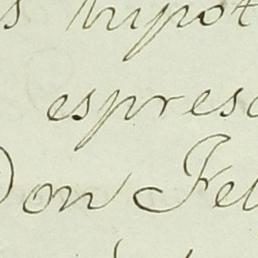 s tripot
espress
Don Fel